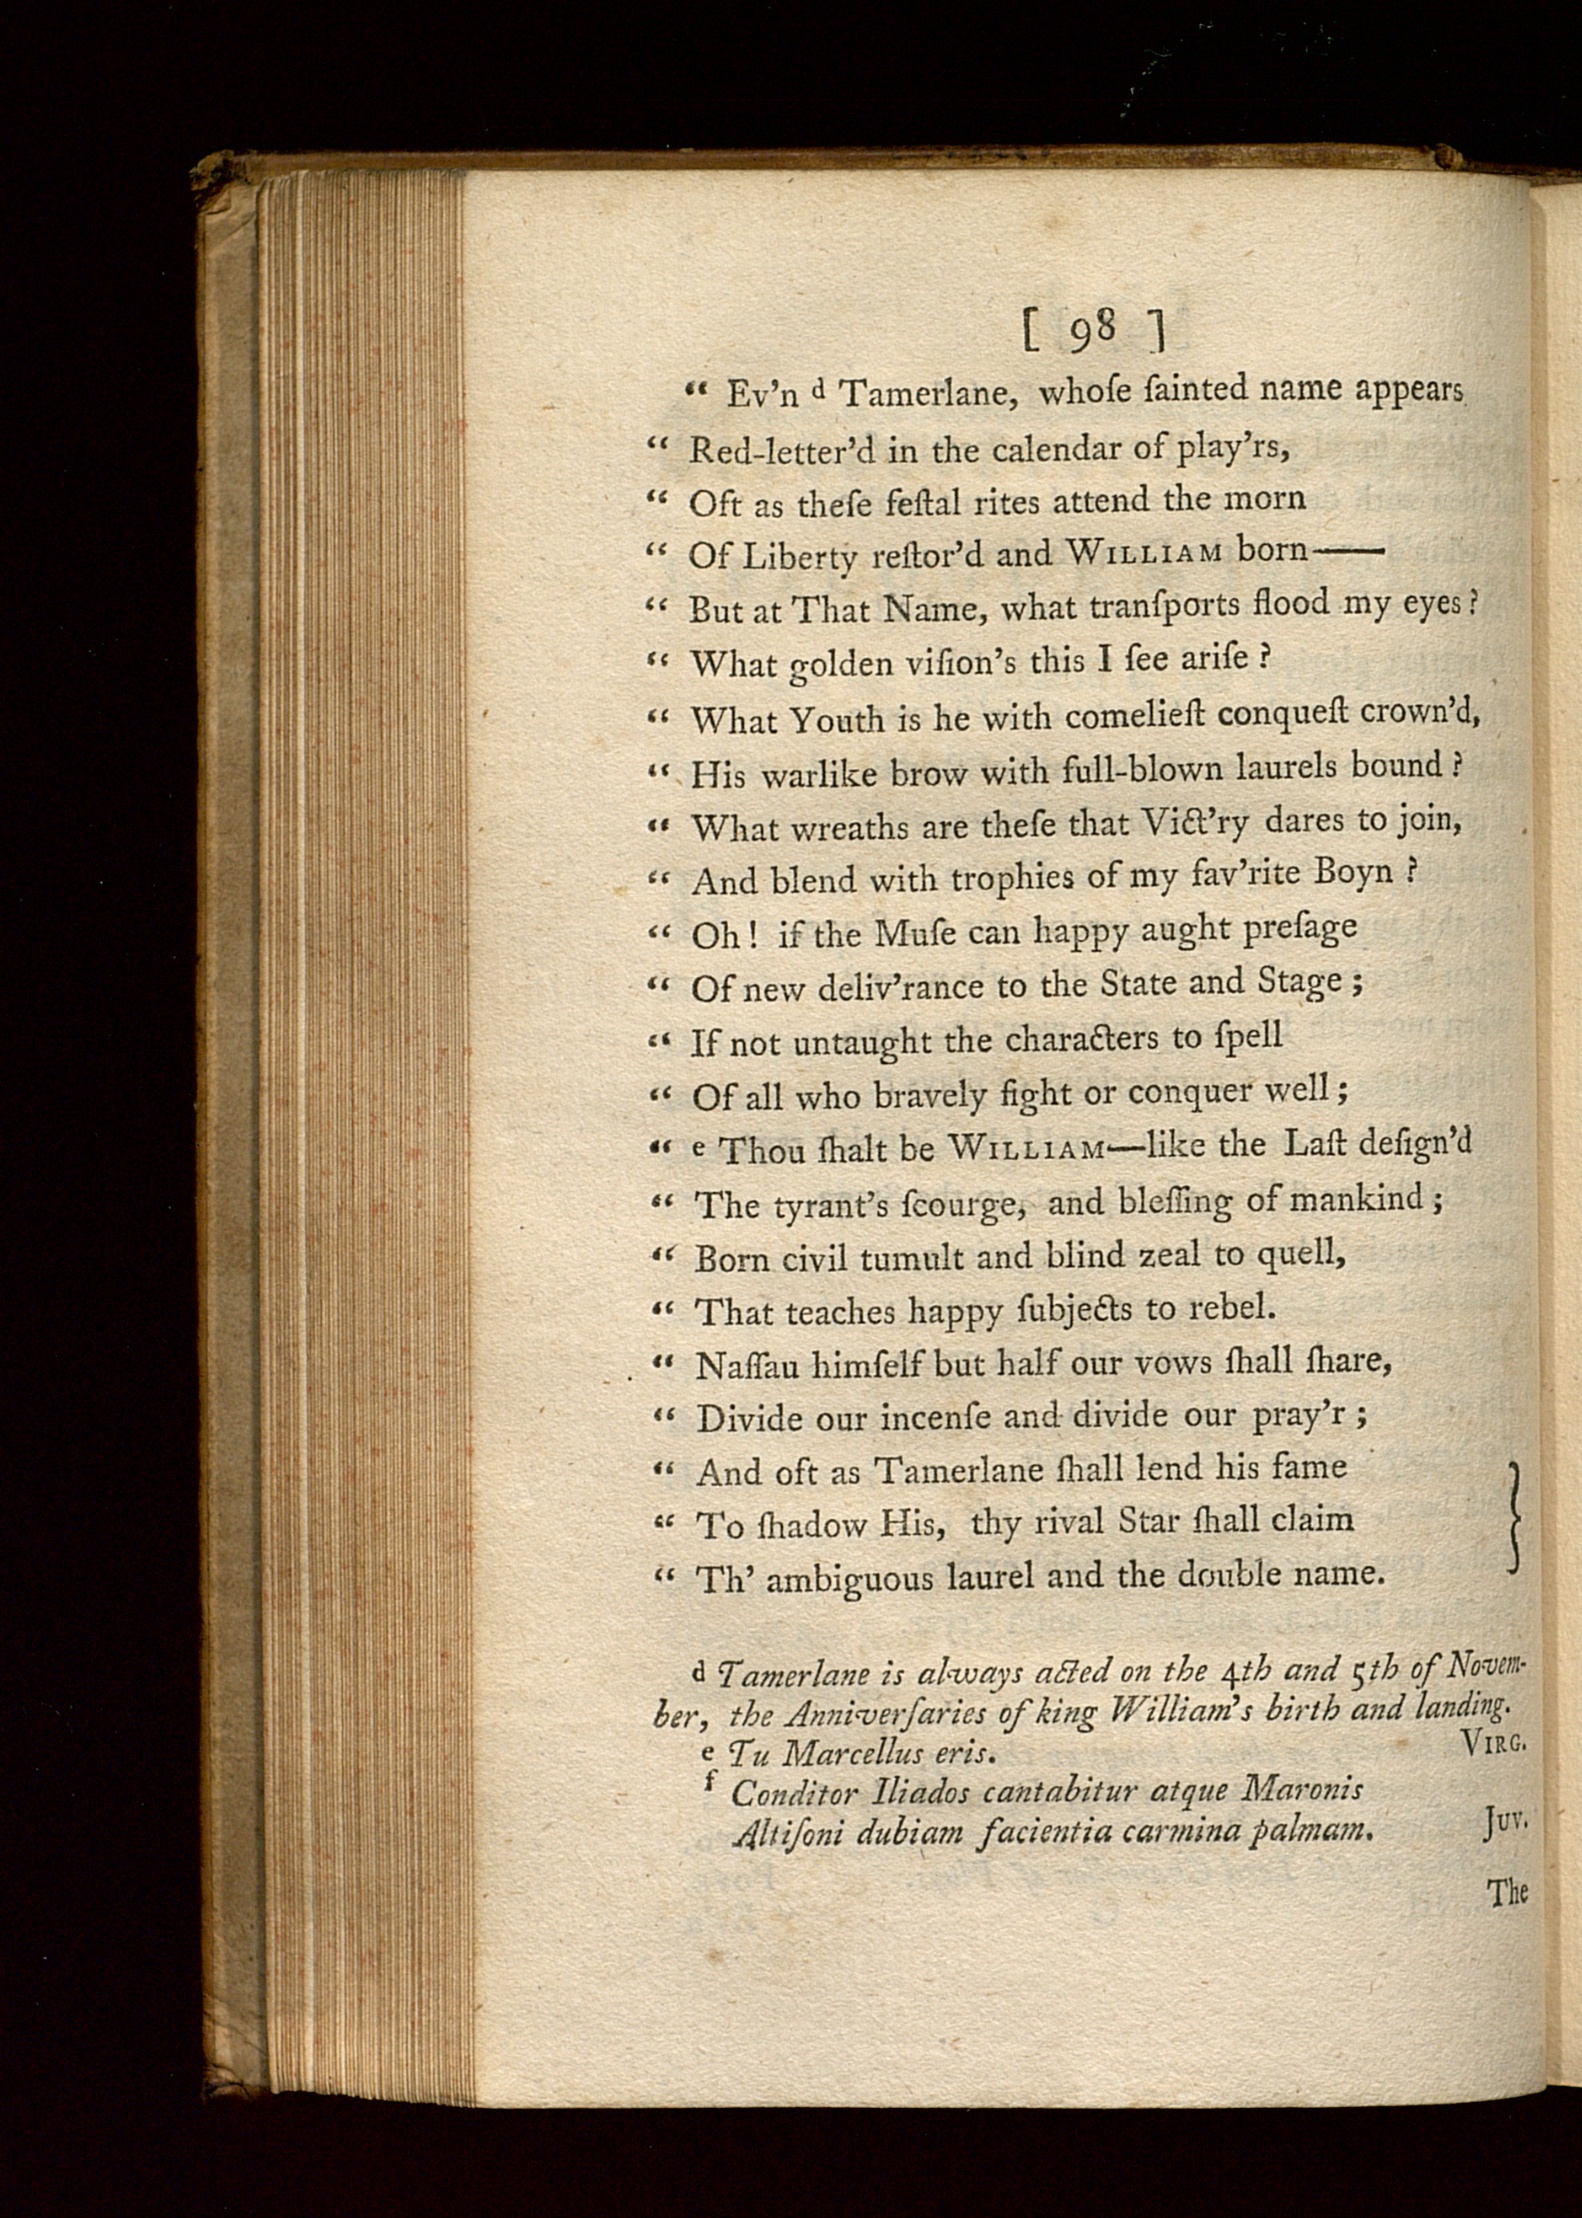 [ 98 ]
“ Ev’n d Tamerlane, whoſe ſainted name appears
“ Red-letter’d in the calendar of play’rs,
“ Oft as theſe feſtal rites attend the morn
“ Of Liberty reſtor’d and WILLIAM born——
“ But at That Name, what tranſports flood my eyes?
“ What golden viſion’s this I ſee ariſe?
“ What Youth is he with comelieſt conqueſt crown’d,
“ His warlike brow with full-blown laurels bound?
“ What wreaths are theſe that Vict’ry dares to join,
“ And blend with trophies of my fav’rite Boyn?
“ Oh! if the Muſe can happy aught preſage
“ Of new deliv’rance to the State and Stage;
“ If not untaught the characters to ſpell
“ Of all who bravely fight or conquer well;
“ e Thou ſhalt be WILLIAM—like the Laſt deſign’d
“ The tyrant’s ſcourge, and bleſſing of mankind;
“ Born civil tumult and blind zeal to quell,
“ That teaches happy ſubjects to rebel.
“ Naſſau himſelf but half our vows ſhall ſhare,
“ Divide our incenſe and divide our pray’r;
“ And oft as Tamerlane ſhall lend his fame
“ To ſhadow His, thy rival Star ſhall claim
“ Th’ ambiguous laurel and the double name.
d Tamerlane is always acted on the 4th and 5th of Novem-
ber, the Anniverſaries of king William’s birth and landing.
e Tu Marcellus eris. VIRG.
f Conditor Iliados cantabitur atque Maronis
Altiſoni dubiam facientia carmina palmam. JUV.
The